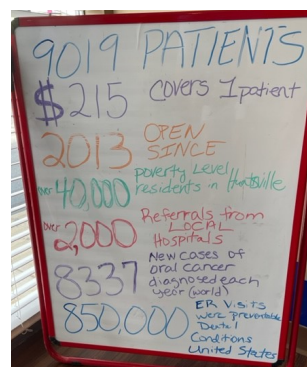 9019 PATIENTS
$215 covers 1 patient
2013 OPEN SINCE
over 40,000 poverty level residents in Huntsville
over 2,000 Referrals from LOCAL Hospitals
8337 New cases of oral cancer diagnosed each year (world)
850,000 ER Visits were preventable Dental Conditions United States